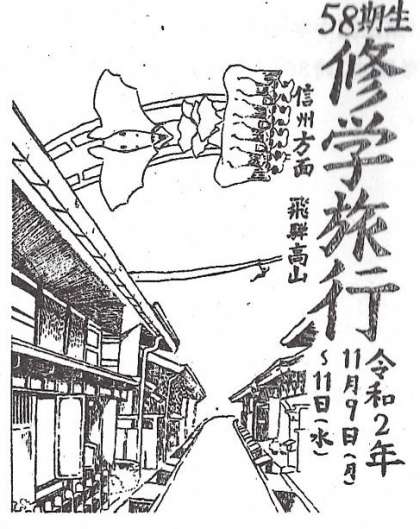 58期生
修学旅行
信州方面
飛騨高山
令和2年
11月9日(月)
~11日(水)